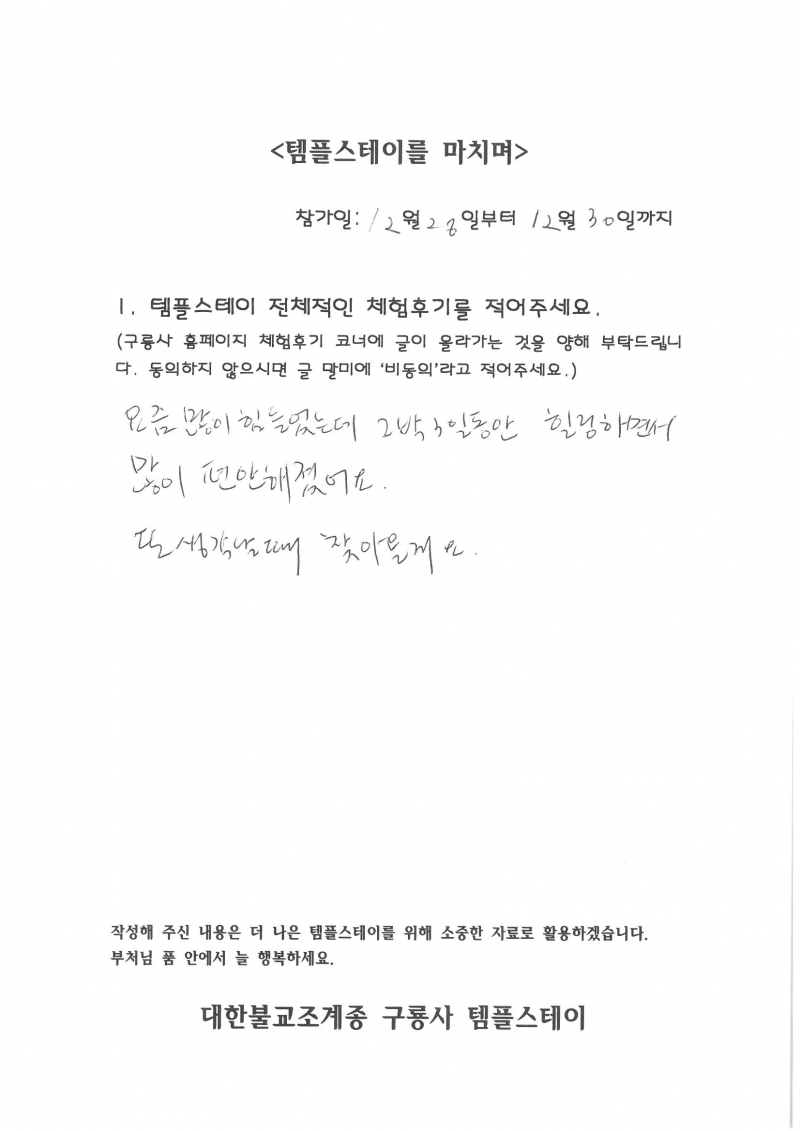 <템플스테이를 마치며>
참가일: 12월 28일부터 12월 30일까지
1. 템플스테이 전체적인 체험후기를 적어주세요.
(구룡사 홈페이지 체험후기 코너에 글이 올라가는 것을 양해 부탁드립니
다. 동의하지 않으시면 글 말미에 '비동의'라고 적어주세요.)
요즘 많이 힘들었는데 2박3일동안 힐링하면서
많이 편안해졌어요.
또 생각날때 찾아올게요.
작성해 주신 내용은 더 나은 템플스테이를 위해 소중한 자료로 활용하겠습니다.
부처님 품 안에서 늘 행복하세요.
대한불교조계종 구룡사 템플스테이